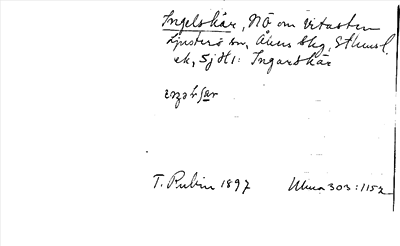 Ingelskär, NÖ om Vitasten
Ljusterö sn, Åkers Skg, Sthmsl.
ek, Sj H1: Ingarskär
T. Rubin 1897 Uma 303:1152